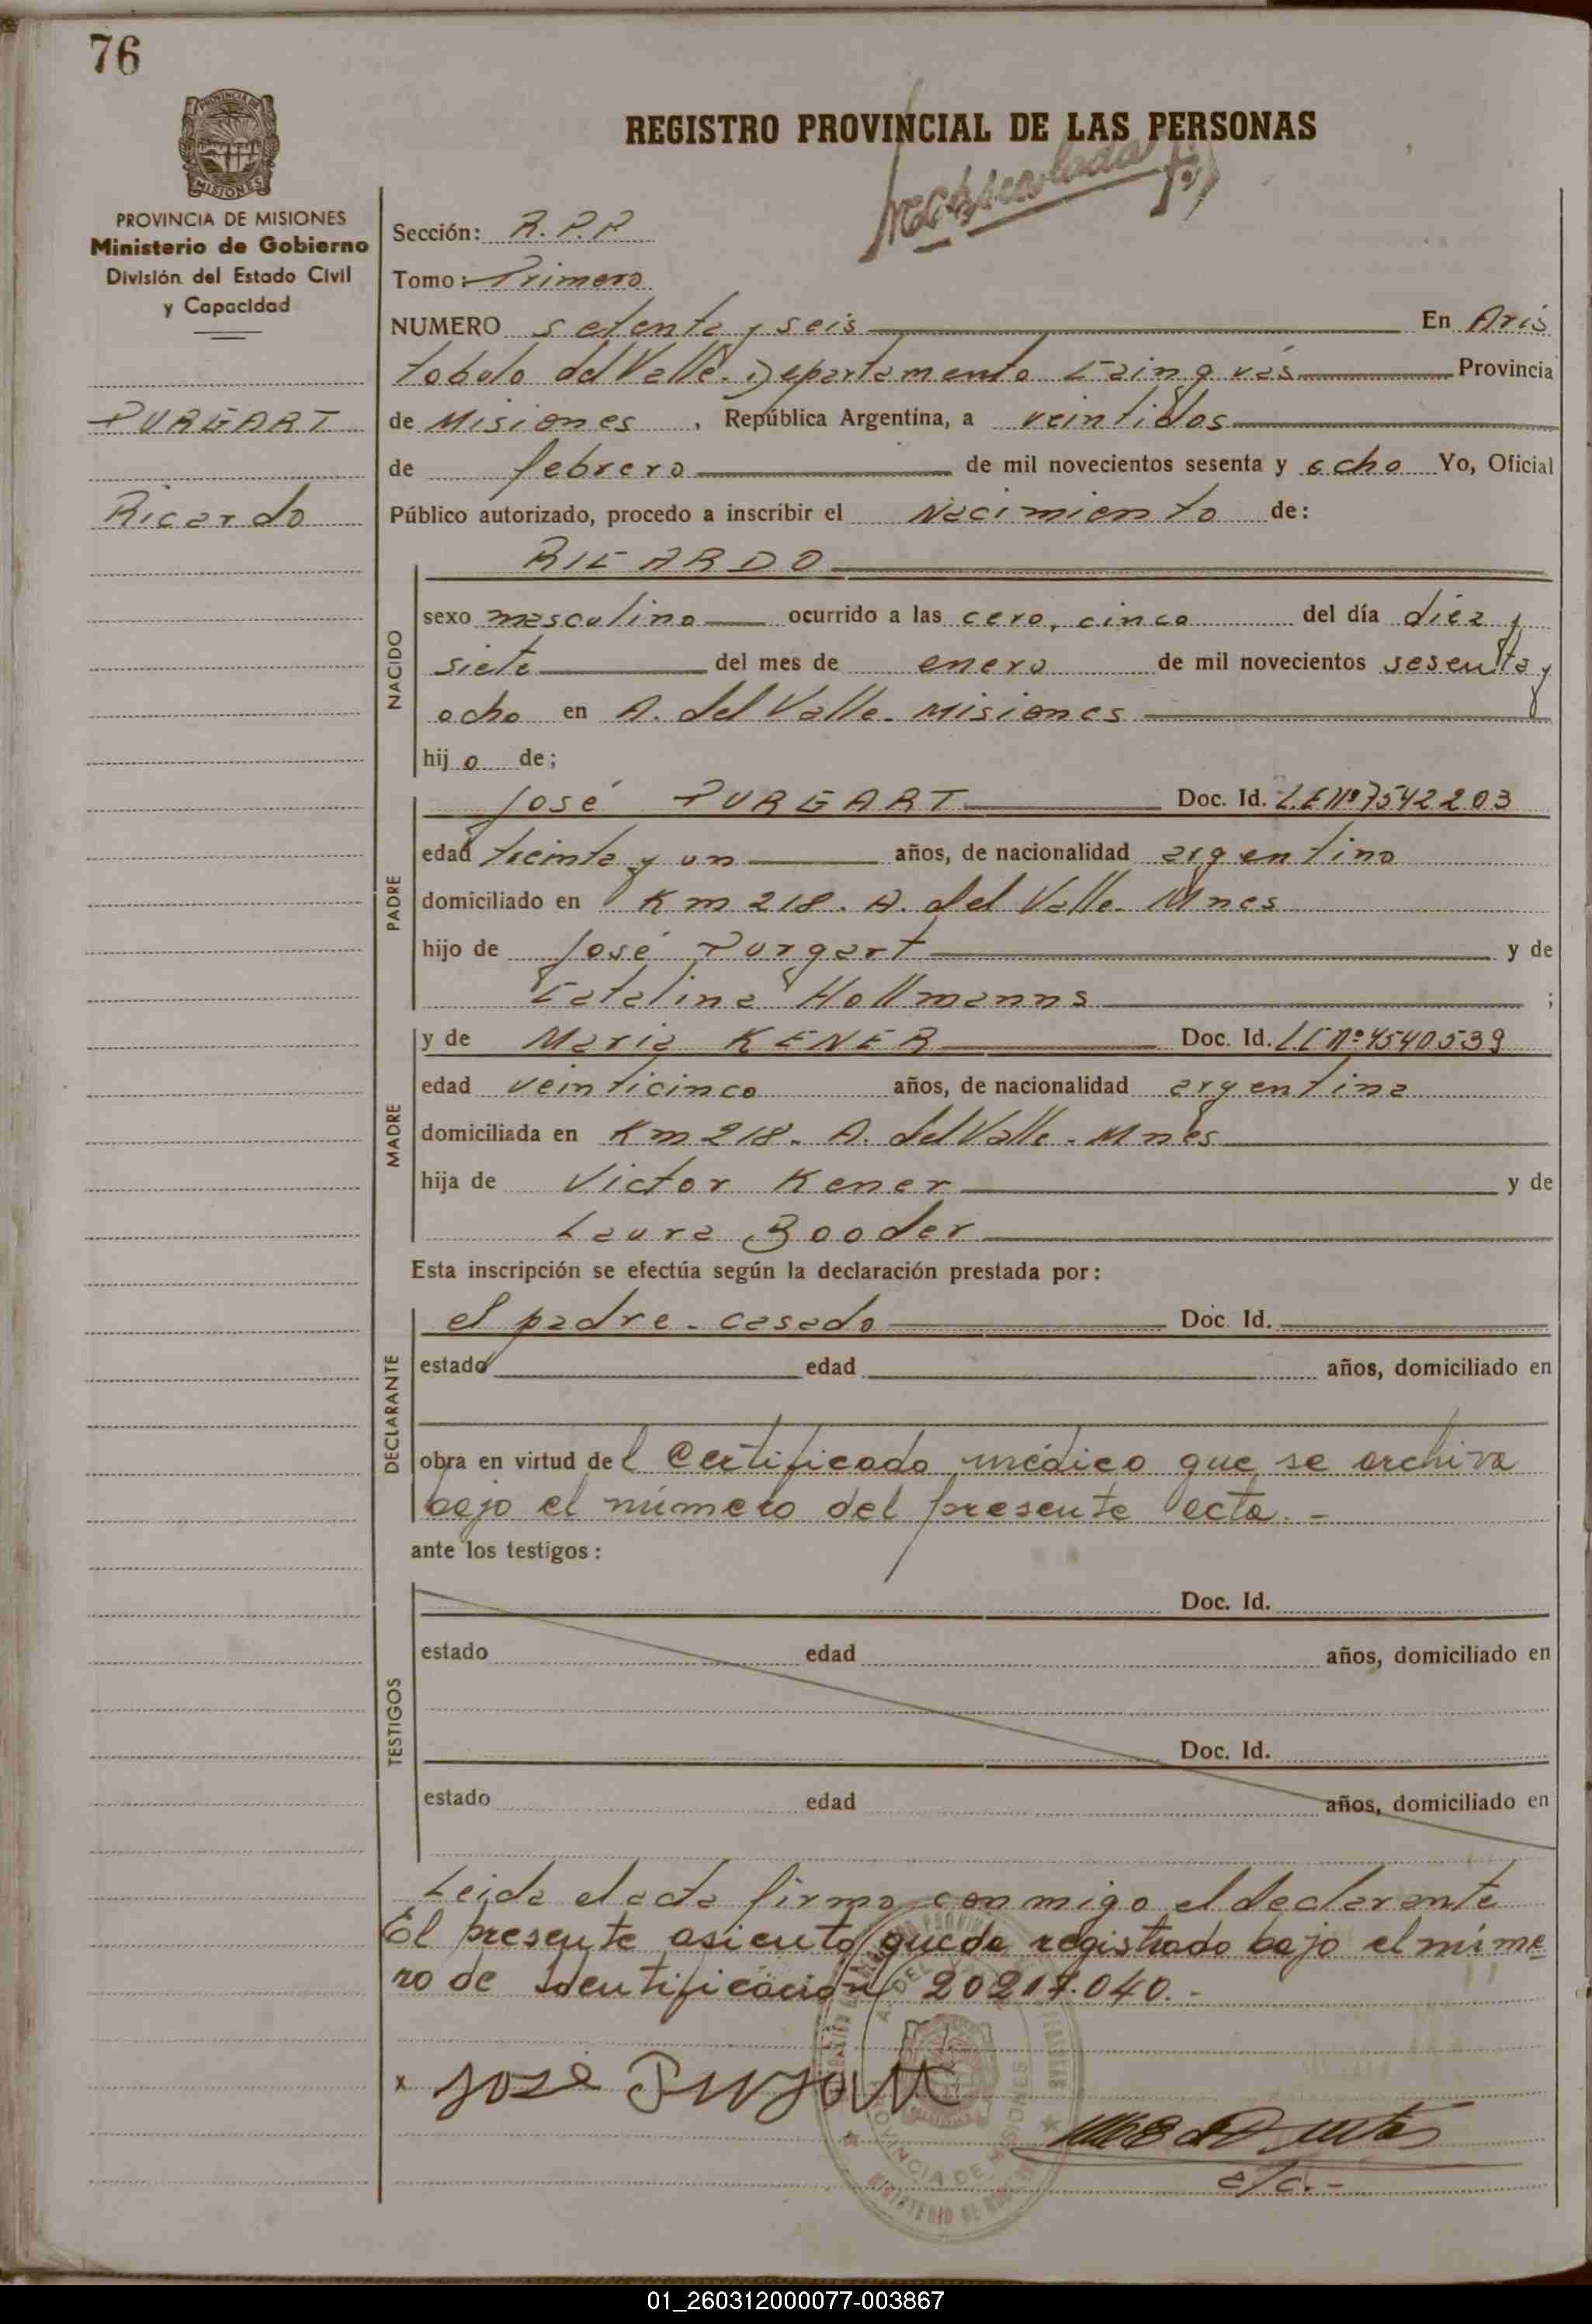 76
PROVINCIA DE
MISIONES
REGISTRO PROVINCIAL DE LAS PERSONAS
PROVINCIA DE MISIONES
Ministerio de Gobierno
División del Estado Civil
y Capacidad
PURGART
Ricardo
Sección: R.P.P
Tomo: Primero
NUMERO setenta y seis En Aris
tobulo del Valle. Departamento Caingüás Provincia
de Misiones, República Argentina, a veintidos
de febrero de mil novecientos sesenta y ocho Yo, Oficial
Público autorizado, procedo a inscribir el Nacimiento de:
RICARDO
NACIDO
sexo masculino ocurrido a las cero, cinco del día diez y
siete del mes de enero de mil novecientos sesenta y
ocho en A. del Valle. Misiones
hijo de;
PADRE
José PURGART Doc. Id. L.E Nº 7542203
edad treinta y un años, de nacionalidad argentino
domiciliado en Km 218. A. del Valle. Mnes
hijo de José Purgart y de
Catalina Hollmanns ;
MADRE
y de Maria KENER Doc. Id. L.C Nº 4540539
edad veinticinco años, de nacionalidad argentina
domiciliada en Km 218. A. del Valle. Mnes
hija de Victor Kener y de
Laura Booder
Esta inscripción se efectúa según la declaración prestada por:
DECLARANTE
el padre. casado Doc. Id.
estado edad años, domiciliado en
obra en virtud del Certificado médico que se archiva
bajo el número del presente acta. -
ante los testigos:
TESTIGOS
Doc. Id.
estado edad años, domiciliado en
Doc. Id.
estado edad años, domiciliado en
Leida el acta firma conmigo el declarante
El presente asiento queda registrado bajo el núme
ro de Identificación 20217.040. -
x José Purgart
a/c. -
PROVINCIA DE MISIONES
01_260312000077-003867